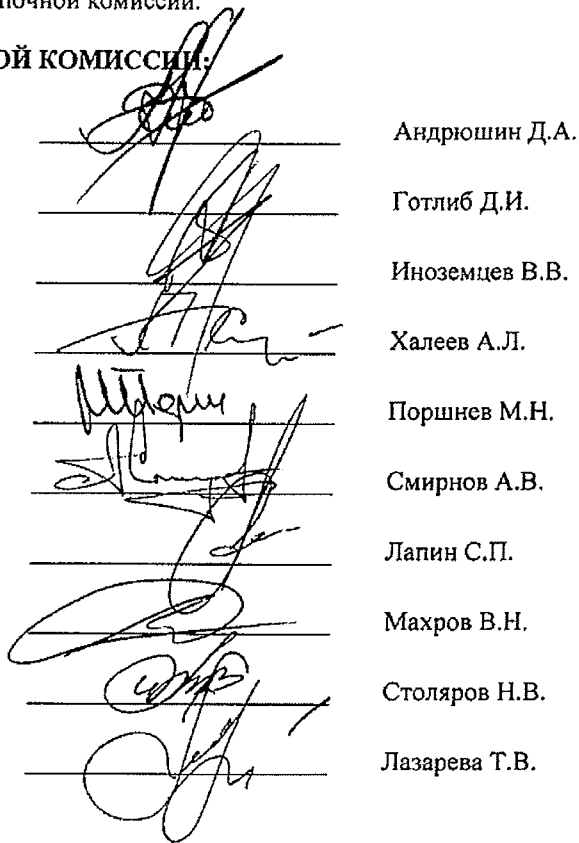 комиссии.
ОЙ КОМИССИИ:
Андрюшин Д.А.
Готлиб Д.И.
Иноземцев В.В.
Халеев А.Л.
Поршнев М.Н.
Смирнов А.В.
Лапин С.П.
Махров В.Н.
Столяров Н.В.
Лазарева Т.В.